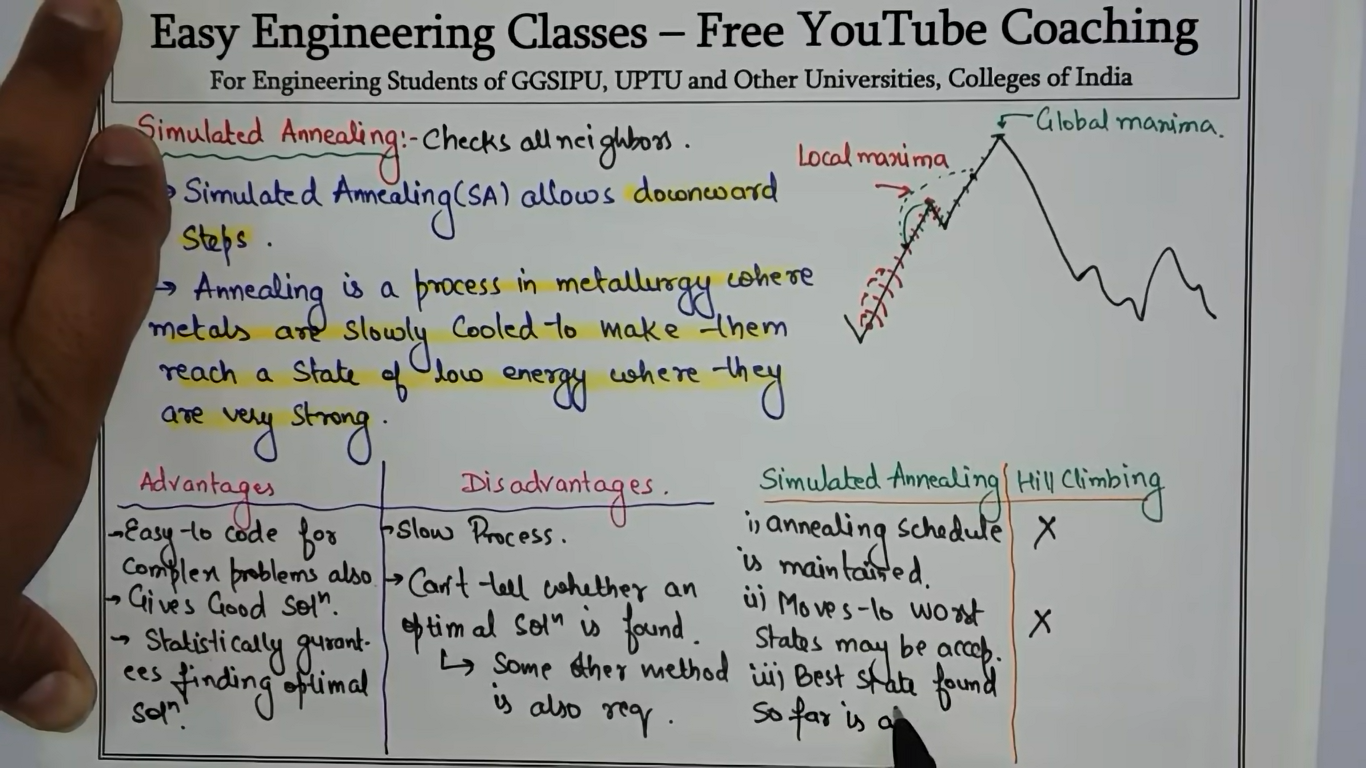 Easy Engineering Classes – Free YouTube Coaching
For Engineering Students of GGSIPU, UPTU and Other Universities, Colleges of India
Simulated Annealing:- Checks all neighbors.
→ Simulated Annealing(SA) allows downward
Steps.
→ Annealing is a process in metallurgy where
metals are slowly cooled to make them
reach a state of low energy where they
are very strong.
Global maxima.
Local maxima
Advantages
→ Easy to code for
complex problems also
→ Gives Good solⁿ.
→ Statistically gurant-
ees finding optimal
solⁿ.
Disadvantages.
→ Slow Process.
→ Can't tell whether an
optimal solⁿ is found.
↳ Some other method
is also req.
Simulated Annealing
i) annealing schedule
is maintained.
ii) Moves to worst
states may be accep.
iii) Best state found
so far is
Hill Climbing
X
X